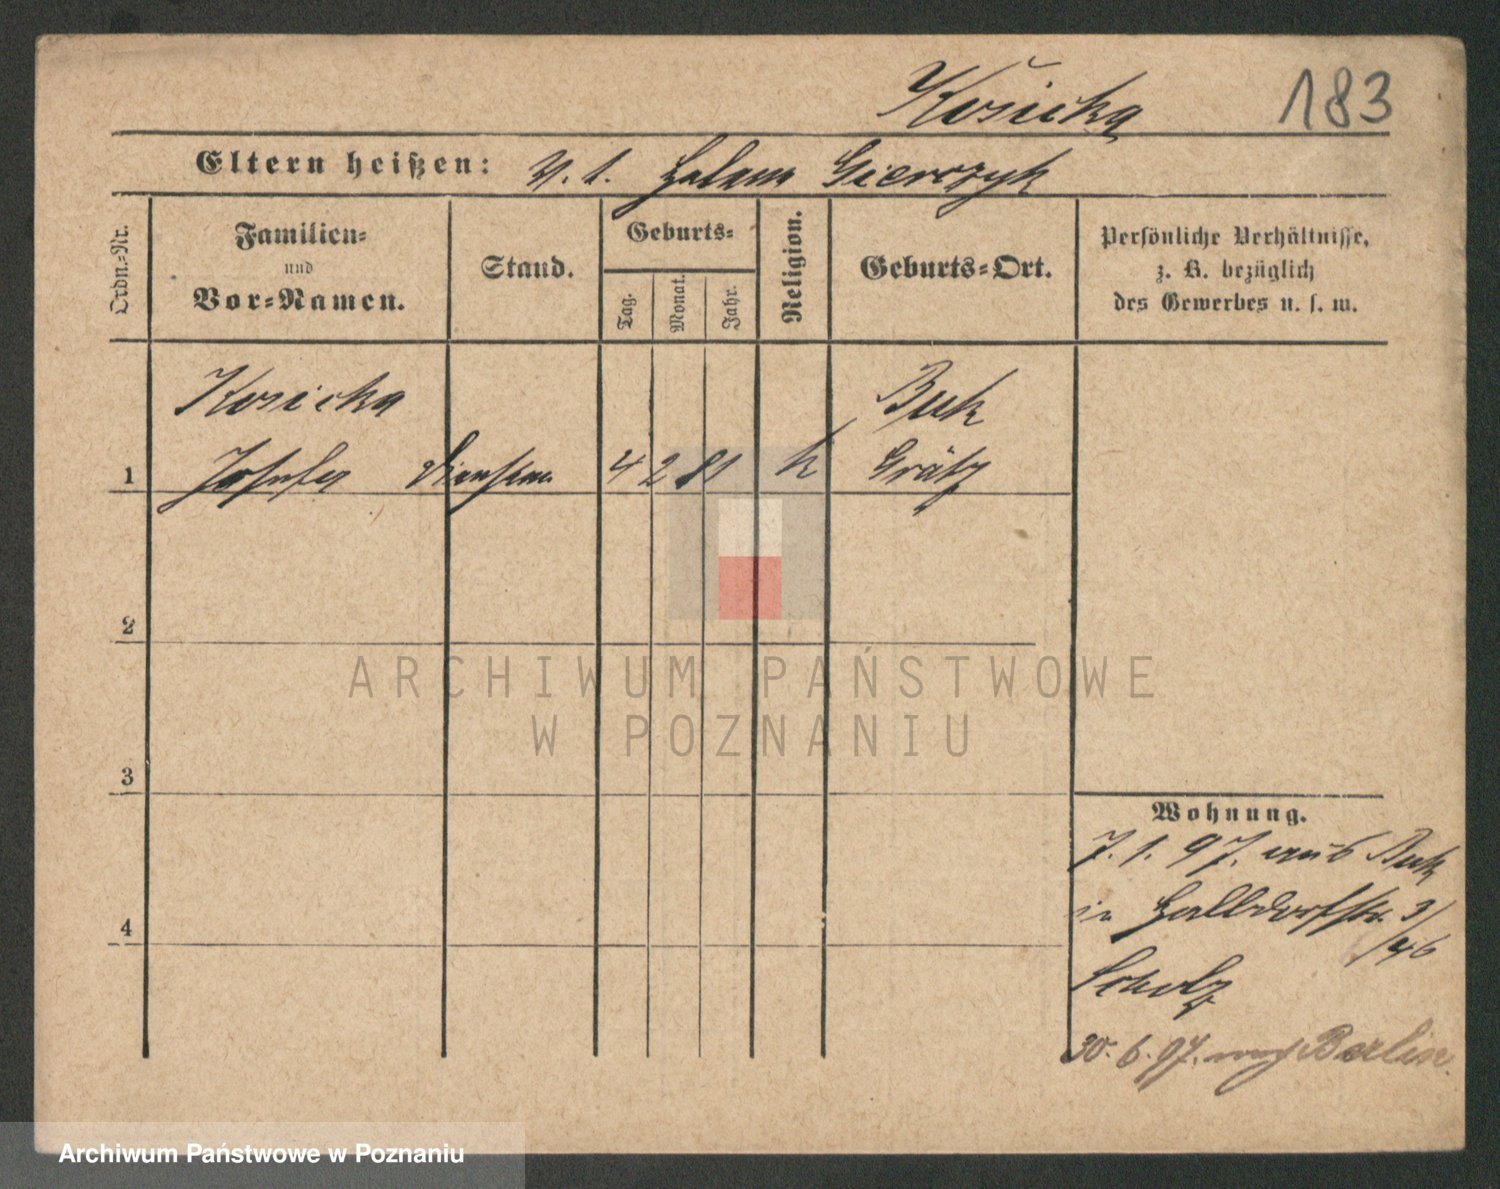 Košicka 183
Eltern heißen: V. t. Helena Gierczyk
Ordn.-Nr.
Familien-
und
Vor-Namen.
Stand.
Geburts-
Tag.
Monat.
Jahr.
Religion.
Geburts-Ort.
Persönliche Verhältnisse,
z. B. bezüglich
des Gewerbes u. s. w.
Kosicka
Buk
1 Josefa 4 2 81 k Grätz
2
3
4
ARCHIWUM PAŃSTWOWE
W POZNANIU
Wohnung.
7. 1. 97. aus Buk
in Halldorfstr. 3/
46
Scholz
30. 6. 97. nach Berlin.
Archiwum Państwowe w Poznaniu